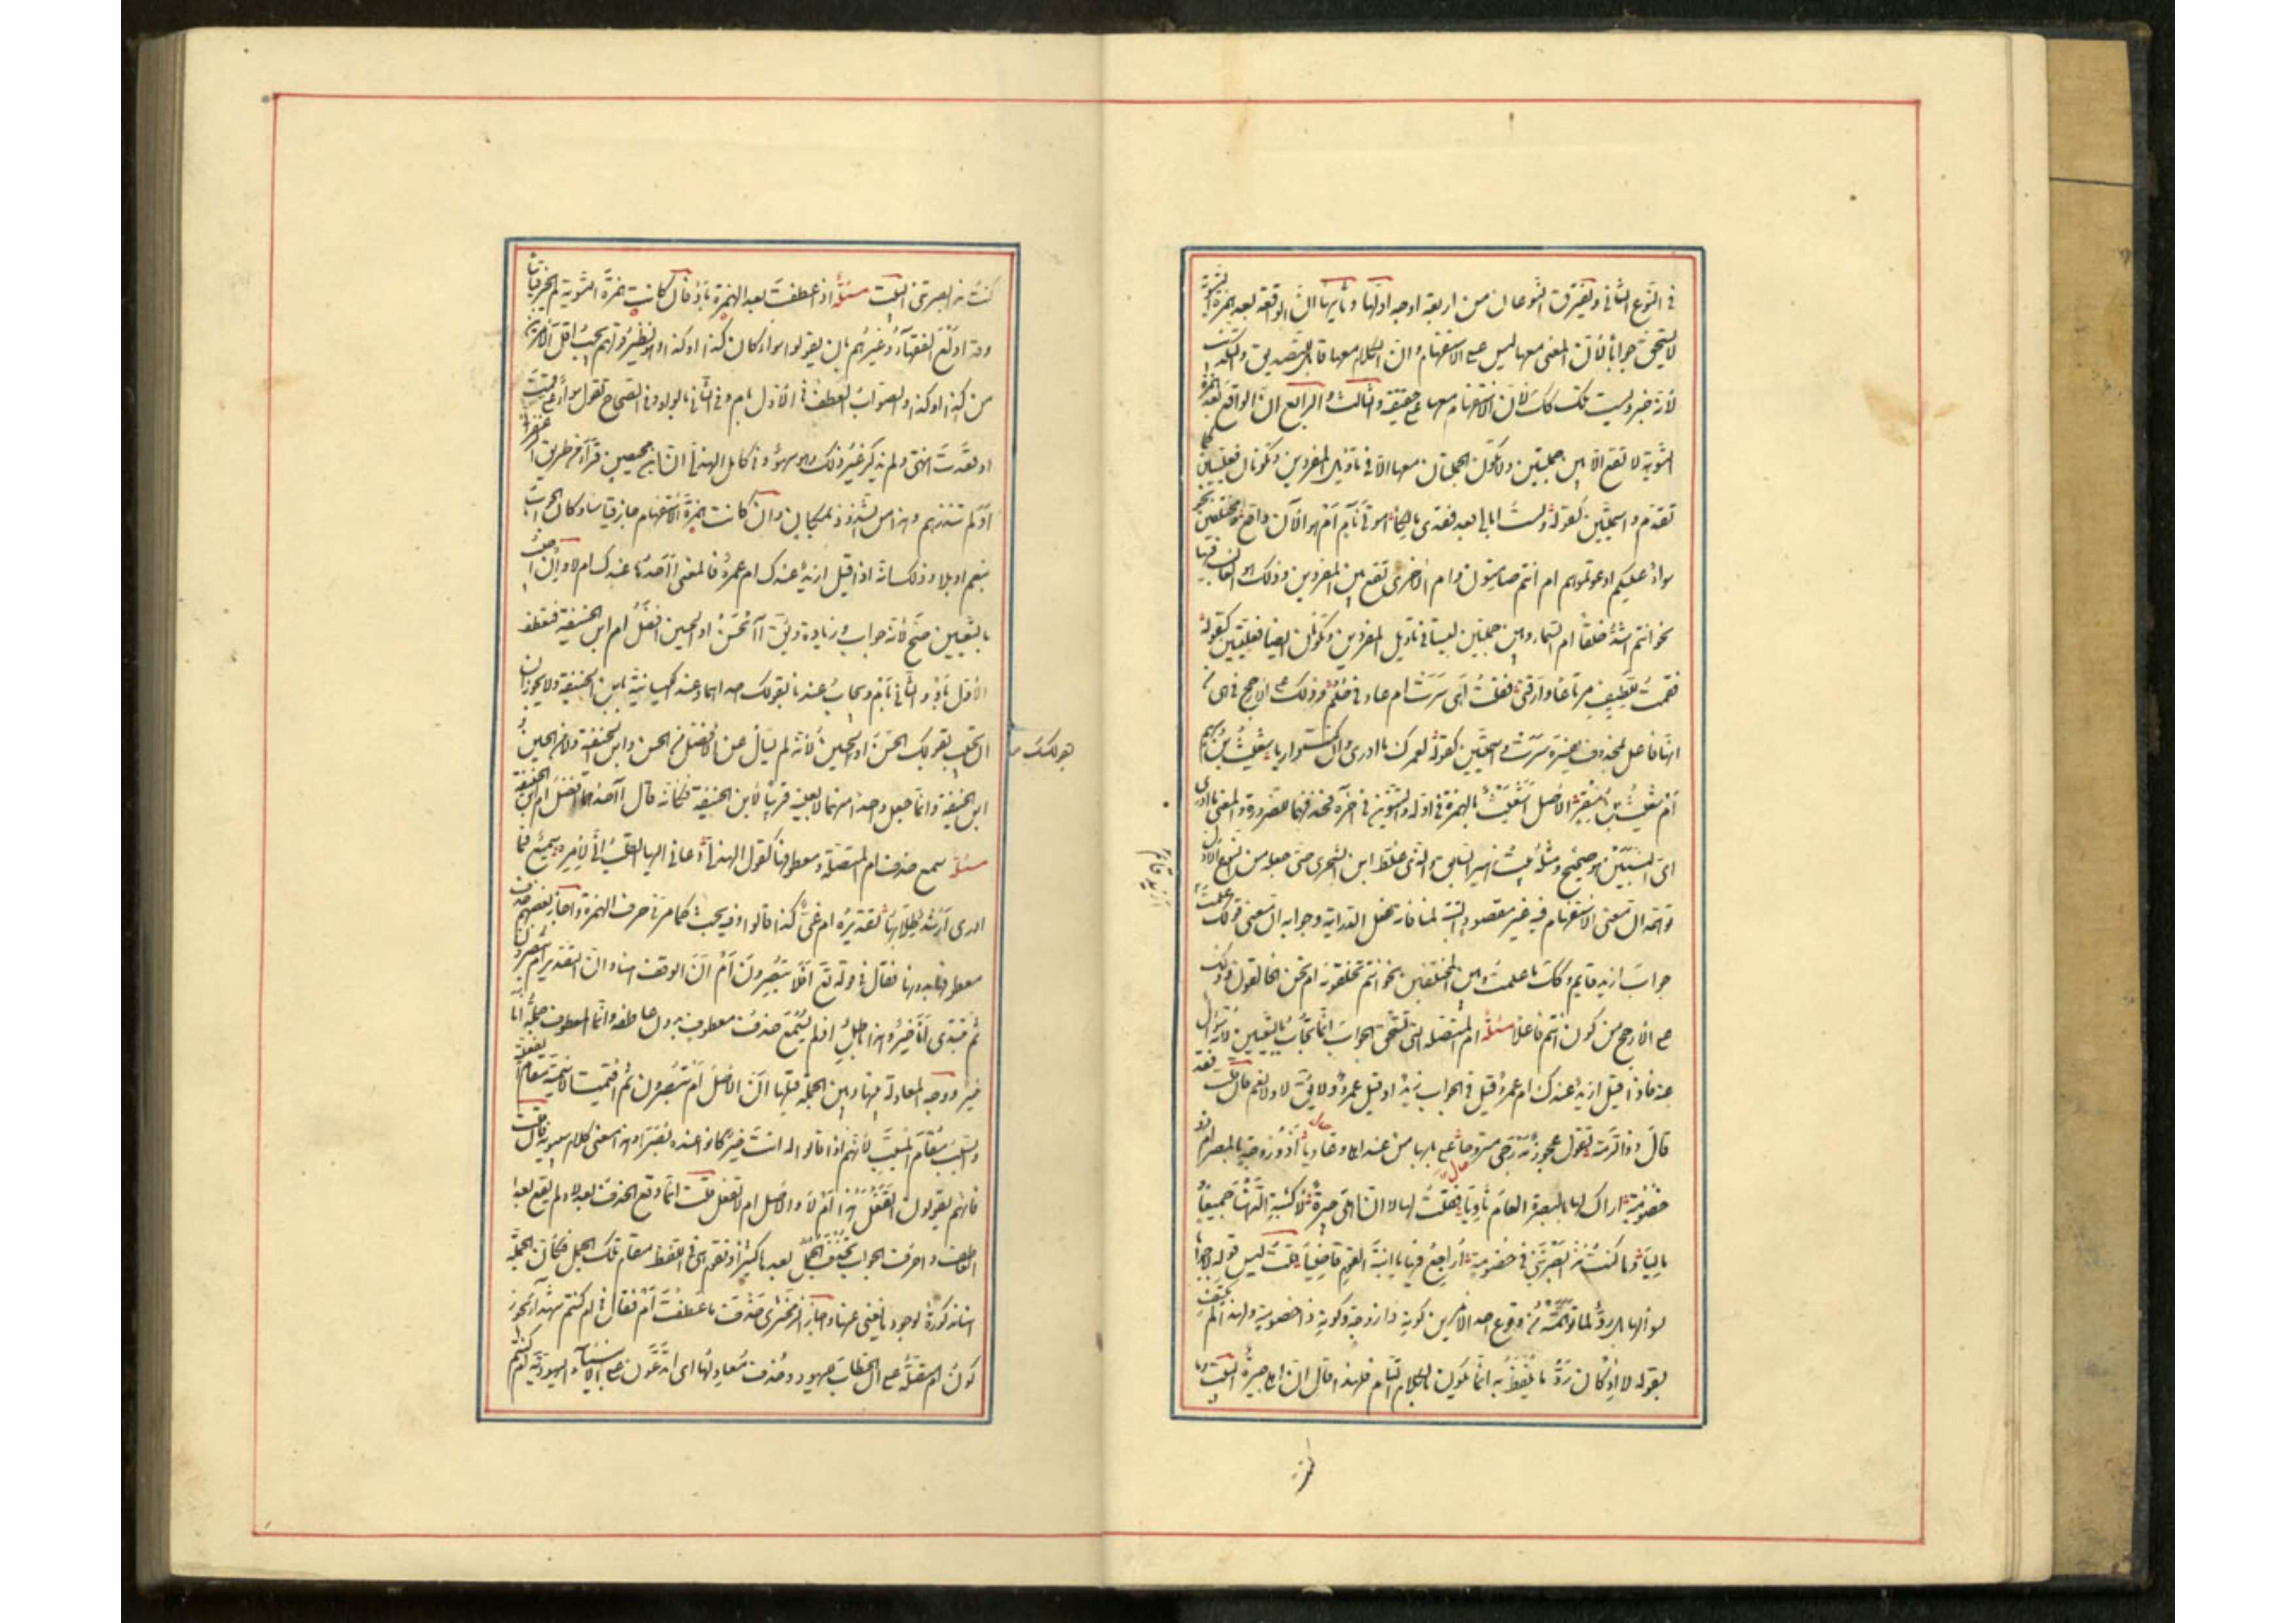 في النوع الثاني ويفترق النوعان من اربعة اوجه اولها وثانيها ان الواقعة بعد همزة التسوية
لا تستحق جوابا لان المعنى معها ليس على الاستفهام وان الكلام معها قابل للتصديق والتكذيب
لانه خبر وليست تلك كك لان الاستفهام معها على حقيقته والثالث والرابع ان الواقعة بعد همزة
التسوية لا تقع الا بين جملتين ولا تكون الجملتان معها الا في تاويل المفردين وتكونان فعليتين كما
تقدم واسميتين كقوله ولست ابالي بعد فقدي مالكا اموتي ناء ام هو الآن واقع ومختلفتين نحو
سواء عليكم ادعوتموهم ام انتم صامتون وام الاخرى تقع بين المفردين وذلك هو الغالب فيها
نحو اانتم اشد خلقا ام السماء وبين جملتين ليستا في تاويل المفردين وتكونان ايضا فعليتين كقوله
فقمت للطيف مرتاعا وارقني فقلت أهي سرت ام عادني حلم وذلك على الارجح في هي من
انها فاعل لمحذوف يفسره سرت واسميتين كقوله لعمرك ما ادري وان كنت داريا شعيث بن سهم
ام شعيث بن منقر الاصل اشعيث بالهمزة في اوله والتنوين في آخره فحذفهما للضرورة والمعنى ما ادري
اي النسبين هو صحيح ومثله بيت زهير السابق والذي غلط ابن الشجري حتى جعله من النوع الاول
توهمه ان معنى الاستفهام فيه غير مقصود البتة لمنافاته لفعل الدراية وجوابه ان معنى قولك علمت
ازيد قايم
جواب ازيد قايم وكك ما علمت وبين المختلفتين نحو اانتم تخلقونه ام نحن الخالقون وذلك
على الارجح من كون انتم فاعلا مسئلة ام المتصلة التي تستحق الجواب انما تجاب بالتعيين لانها سؤال
عنه فاذا قيل ازيد عندك ام عمرو قيل في الجواب زيد او قيل عمرو ولا يق لا ولا نعم فان قلت فقد
قال ذو الرمة تقول عجوز مدرجي متروحا على بابها من عند اهلي وغاديا أذو زوجة بالمصر ام ذو
خصومة اراك لها بالبصرة العام ثاويا فقلت لها لا ان اهلي جيرة لاكثبة الدهنا جميعا
وماليا وما كنت مذ ابصرتني في خصومة اراجع فيها يا ابنة القوم قاضيا قلت ليس قوله لا جوابا
لسؤالها بل رد لما توهمته من وقوع احد الامرين كونه ذا زوجة وكونه ذا خصومة ولهذا لم يكتف
بقوله لا اذ كان رد ما تلفظ به انما يكون بالكلام التام فلهذا قال ان اهلي جيرة البيت وما
كنت مذ ابصرتني البيت مسئلة اذا عطفت بعد الهمزة باو فان كانت همزة التسوية لم يجز قياسا
وقد اولع الفقهاء وغيرهم بان يقولوا سواء كان كذا او كذا وهو نظير قولهم يجب اقل الامرين
من كذا او كذا والصواب العطف في الاول بام وفي الثاني بالواو وفي الصحاح تقول سواء علي قمت
او قعدت انتهى ولم يذكر غير ذلك وهو سهو وفي كامل الهذلي ان ابن محيصن قرأ من طريق الزعفراني
أو لم تنذرهم وهذا من الشذوذ بمكان وان كانت همزة الاستفهام جاز قياسا وكان الجواب
بنعم او بلا وذلك انه اذا قيل ازيد عندك ام عمرو فالمعنى أاحدهما عندك ام لا وان اجبت
بالتعيين صح لانه جواب وزيادة ويق أالحسن او الحسين افضل ام ابن الحنفية فتعطف
الاول باو والثاني بام ويجاب عندنا بقولك احدهما وعند الكيسانية بابن الحنفية ولا يجوز ان
تجيب بقولك الحسن او الحسين لانه لم يسأل عن الافضل من الحسن وابن الحنفية ولا من الحسين و
بقولك
ابن الحنفية وانما جعل واحدا منهما لا بعينه قرينا لابن الحنفية فكانه قال أاحدهما افضل ام ابن الحنفية
مسئلة سمع حذف ام المتصلة ومعطوفها كقول الهذلي دعاني اليها القلب اني لامره سميع فما
ادري أرشد طلابها تقديره ام غي كذا قالوا وفيه بحث كما مر في حرف الهمزة واجاز بعضهم حذف
معطوفها بدونها فقال في قوله تع افلا تبصرون أم ان الوقف هنا وان التقدير ام تبصرون
ثم يبتدئ انا خير وهذا باطل اذ لم يسمع حذف معطوف بدون عاطفه وانما المعطوف جملة انا
خير ووجه المعادلة بينها وبين الجملة قبلها ان الاصل ام تبصرون ثم اقيمت الاسمية مقام الفعلية
والسبب مقام المسبب لانهم اذا قالوا له انت خير كانوا عنده بصراء وهذا معنى كلام سيبويه فان قلت
فانهم يقولون اتفعل هذا أم لا والاصل ام لا تفعل قلت انما وقع الحذف بعد لا ولم يقع بعد
العاطف واحرف الجواب تحذف الجمل بعدها كثيرا وتقوم هي في اللفظ مقام تلك الجمل فكأن الجملة
هنا مذكورة لوجود ما يغني عنها واجاز الزمخشري حذف ما عطفت أم فقال في ام كنتم شهداء يجوز
كون ام متصلة على ان الخطاب لليهود وحذف معادلها اى اتدعون على الانبياء اليهودية ام كنتم